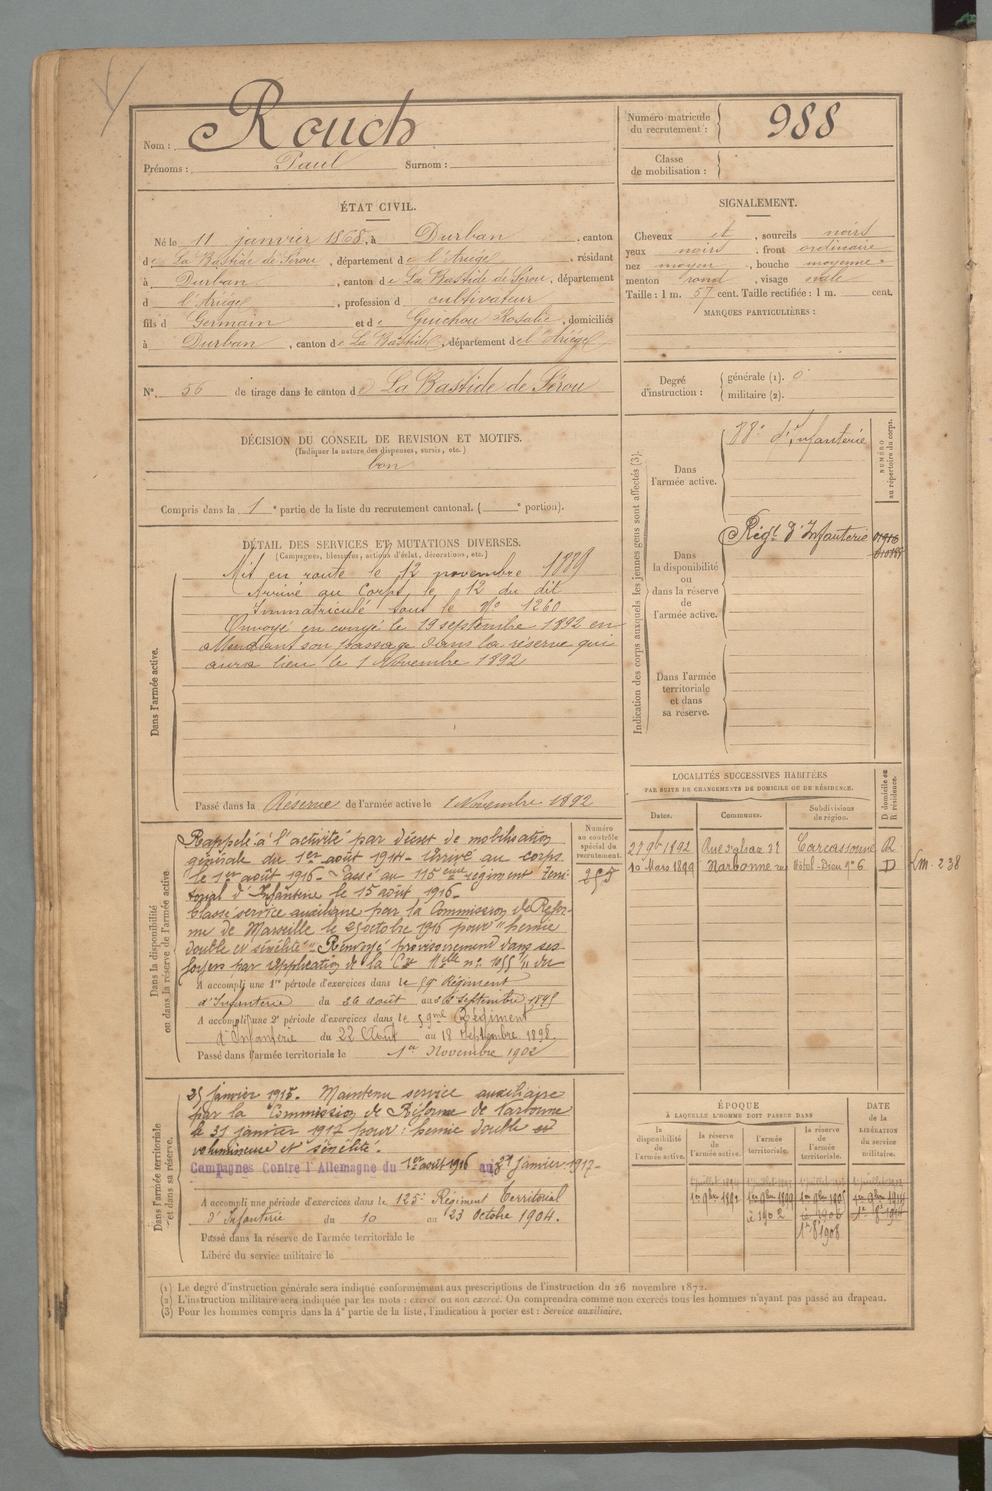 Nom : Rouch
Prénoms : Paul Surnom :
Numéro matricule du recrutement : 988
Classe de mobilisation :
ÉTAT CIVIL.
Né le 11 janvier 1868, à Durban, canton
de La Bastide de Sérou, département de l'Ariège, résidant
à Durban, canton de La Bastide de Sérou, département
d l'Ariège, profession d cultivateur
fils d Germain et de Guichou Rosalie, domiciliés
à Durban, canton de La Bastide, département de l'Ariège
N° 56 de tirage dans le canton de La Bastide de Sérou
SIGNALEMENT.
Cheveux et, sourcils noirs
yeux noirs, front ordinaire
nez moyen, bouche moyenne
menton rond, visage ovale
Taille : 1 m. 57 cent. Taille rectifiée : 1 m. cent.
MARQUES PARTICULIÈRES :
Degré d'instruction : générale (1). 0
militaire (2).
DÉCISION DU CONSEIL DE REVISION ET MOTIFS.
(Indiquer la nature des dispenses, sursis, etc.)
bon
Compris dans la 1e partie de la liste du recrutement cantonal. ( e portion).
DÉTAIL DES SERVICES ET MUTATIONS DIVERSES.
(Campagnes, blessures, actions d'éclat, décorations, etc.)
Dans l'armée active.
Mis en route le 12 novembre 1889
Arrivé au Corps le 12 du dit
Immatriculé sous le N° 1260
Envoyé en congé le 19 septembre 1892 en
attendant son passage dans la réserve qui
aura lieu le 1 Novembre 1892
Passé dans la Réserve de l'armée active le 1 Novembre 1892
Indication des corps auxquels les jeunes gens sont affectés (3).
NUMÉRO au répertoire du corps.
Dans l'armée active.
d'Infanterie
Dans la disponibilité ou dans la réserve de l'armée active.
Régt d'Infanterie
Dans l'armée territoriale et dans sa réserve.
LOCALITÉS SUCCESSIVES HABITÉES
PAR SUITE DE CHANGEMENTS DE DOMICILE OU DE RÉSIDENCE.
D domicile ou R résidence.
Dates. Communes. Subdivisions de région.
1892 Carcassonne R
10 Mars 1899 Narbonne Hôtel-Dieu n° 6 D Km. 238
Dans la disponibilité ou dans la réserve de l'armée active
Numéro au contrôle spécial du recrutement.
Rappelé à l'activité par décret de mobilisation
générale du 1er août 1914. Arrivé au corps
le 1er août 1916. Passé au 115eme régiment Terri-
torial d'Infanterie le 15 août 1916.
Classé service auxiliaire par la Commission de Réfor-
me de Marseille le 25 octobre 1916 pour "hernie
double et sénilité". Renvoyé provisoirement dans ses
foyers par application de la
A accompli une 1re période d'exercices dans le 59e Régiment
d'Infanterie du 26 août au septembre 1895
A accompli une 2e période d'exercices dans le 59me Régiment
d'Infanterie du 22 Août au 18 Septembre 1898
Passé dans l'armée territoriale le 1er Novembre 1902
Dans l'armée territoriale et dans sa réserve.
Maintenu service auxiliaire
par la Commission de Réforme de Narbonne
le 31 janvier 1917 pour : hernie double et
volumineuse et sénilité.
Campagnes Contre l'Allemagne du 1er août 1916 au 31 Janvier 1917
A accompli une période d'exercices dans le 125e Régiment Territorial
d'Infanterie du 10 au 23 Octobre 1904.
Passé dans la réserve de l'armée territoriale le
Libéré du service militaire le
ÉPOQUE
À LAQUELLE L'HOMME DOIT PASSER DANS
DATE DE LA LIBÉRATION du service militaire.
la disponibilité de l'armée active. la réserve de l'armée active. l'armée territoriale. la réserve de l'armée territoriale.
1er 9bre 1892 1er 9bre 1899
(1) Le degré d'instruction générale sera indiqué conformément aux prescriptions de l'instruction du 26 novembre 1872.
(2) L'instruction militaire sera indiquée par les mots : exercé ou non exercé. On comprendra comme non exercés tous les hommes n'ayant pas passé au drapeau.
(3) Pour les hommes compris dans la 4e partie de la liste, l'indication à porter est : Service auxiliaire.